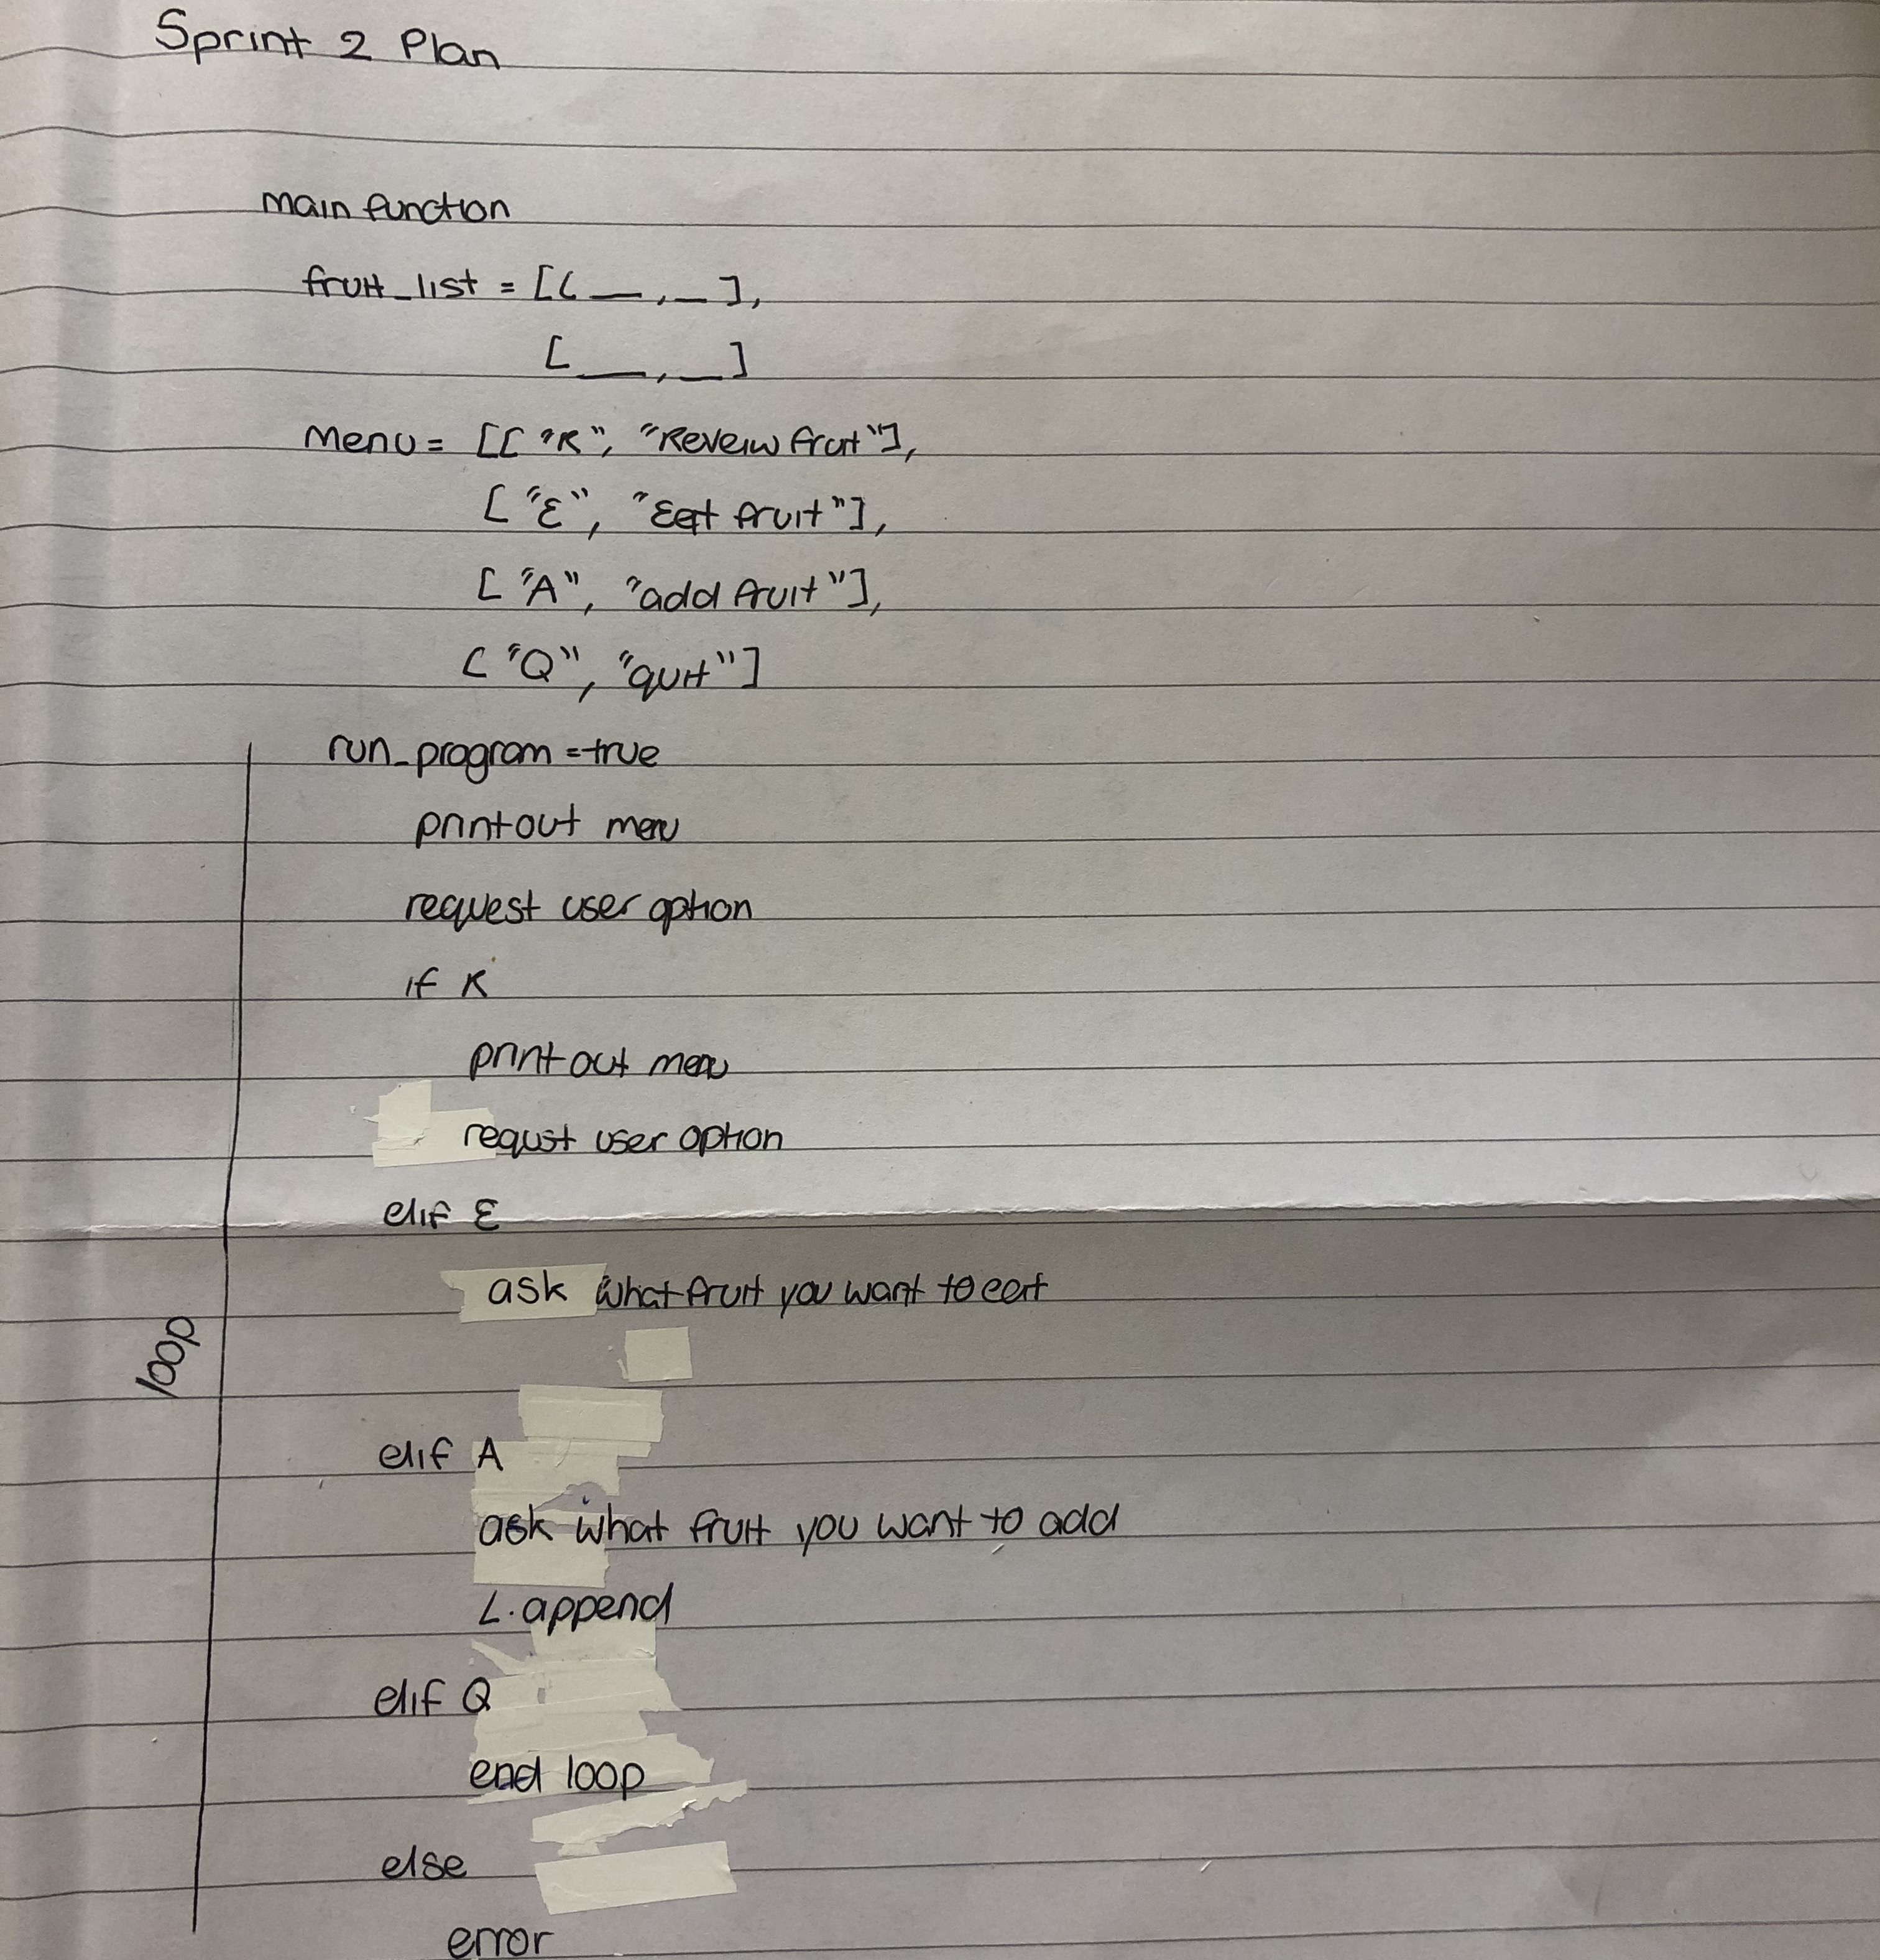 Sprint 2 Plan
main function
fruit_list = [[ __ , _ ],
[ __ , _ ]
Menu = [[ "R", "Reveiw fruit"],
[ "E", "Eat fruit"],
[ "A", "add fruit"],
[ "Q", "quit"]
run_program = true
print out menu
request user option
if R
print out menu
requst user option
elif E
ask what fruit you want to eat
loop
elif A
ask what fruit you want to add
L.append
elif Q
end loop
else
error